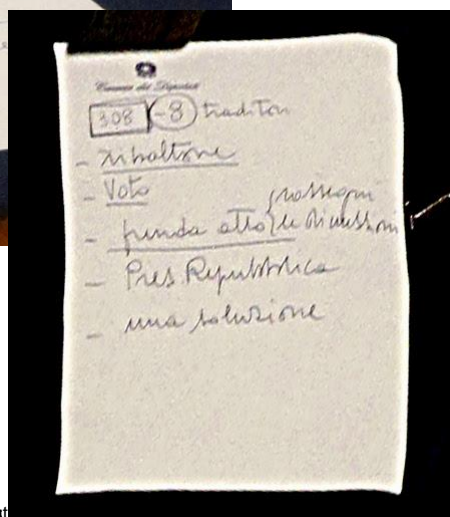 Camera dei Deputati
308 -8 traditori
- ribaltone
- Voto
- prenda atto rassegni le dimissioni
- Pres. Repubblica
- una soluzione